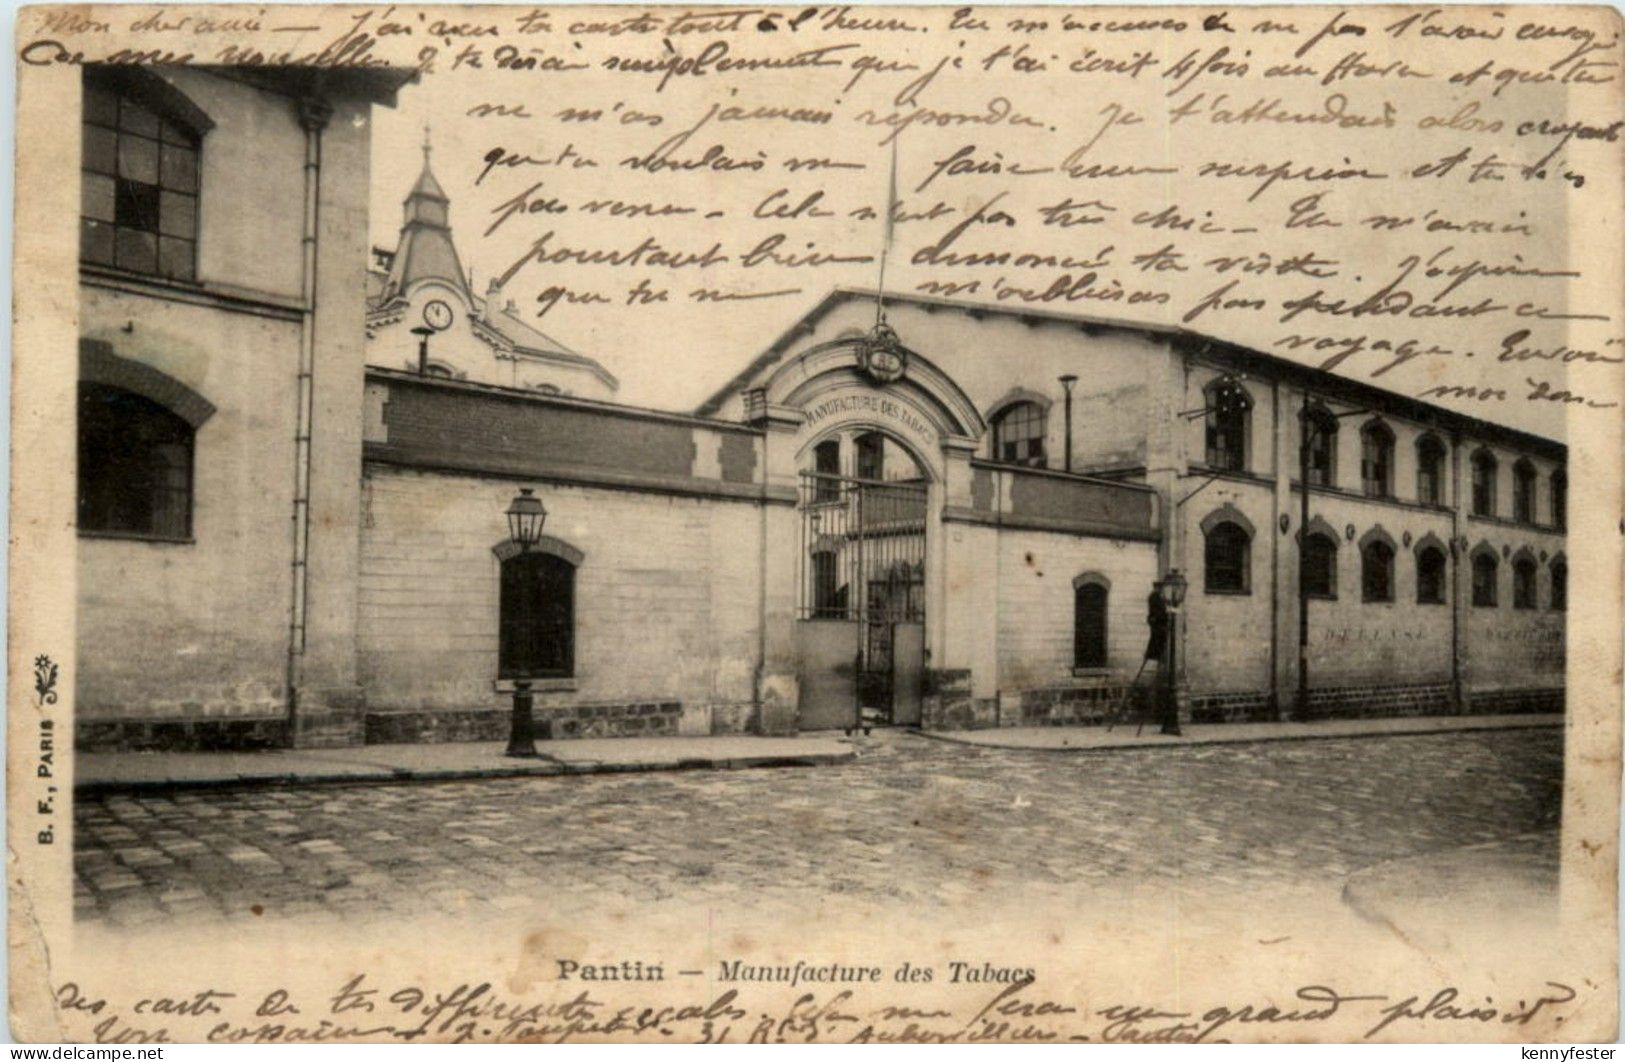 Mon cher ami — J'ai reçu ta carte tout à l'heure. Tu m'accuses de ne pas t'avoir envoyé
de mes nouvelles. Je te dirai simplement que je t'ai écrit 4 fois au Havre et que tu
ne m'as jamais répondu. Je t'attendais alors croyant
que tu voulais me faire une surprise et tu n'es
pas venu — Cela n'est pas très chic — Tu m'avais
pourtant bien annoncé ta visite. J'espère
que tu ne m'oublieras pas pendant ce
voyage. Envoie
moi donc
MANUFACTURE DES TABACS
DEFENSE
B. F., PARIS
Pantin — Manufacture des Tabacs
des cartes de tes différentes escales. Cela me fera un grand plaisir.
Ton copain — 31 Rte d'Aubervilliers — Pantin —
kennyfester